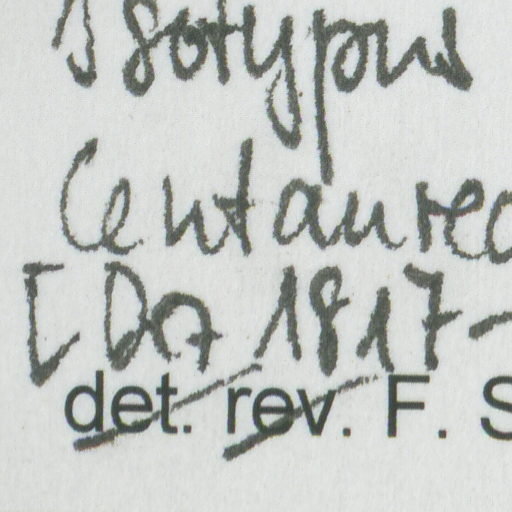 Isotypus
Centaurea
[Da 1817-
det. rev. F. S